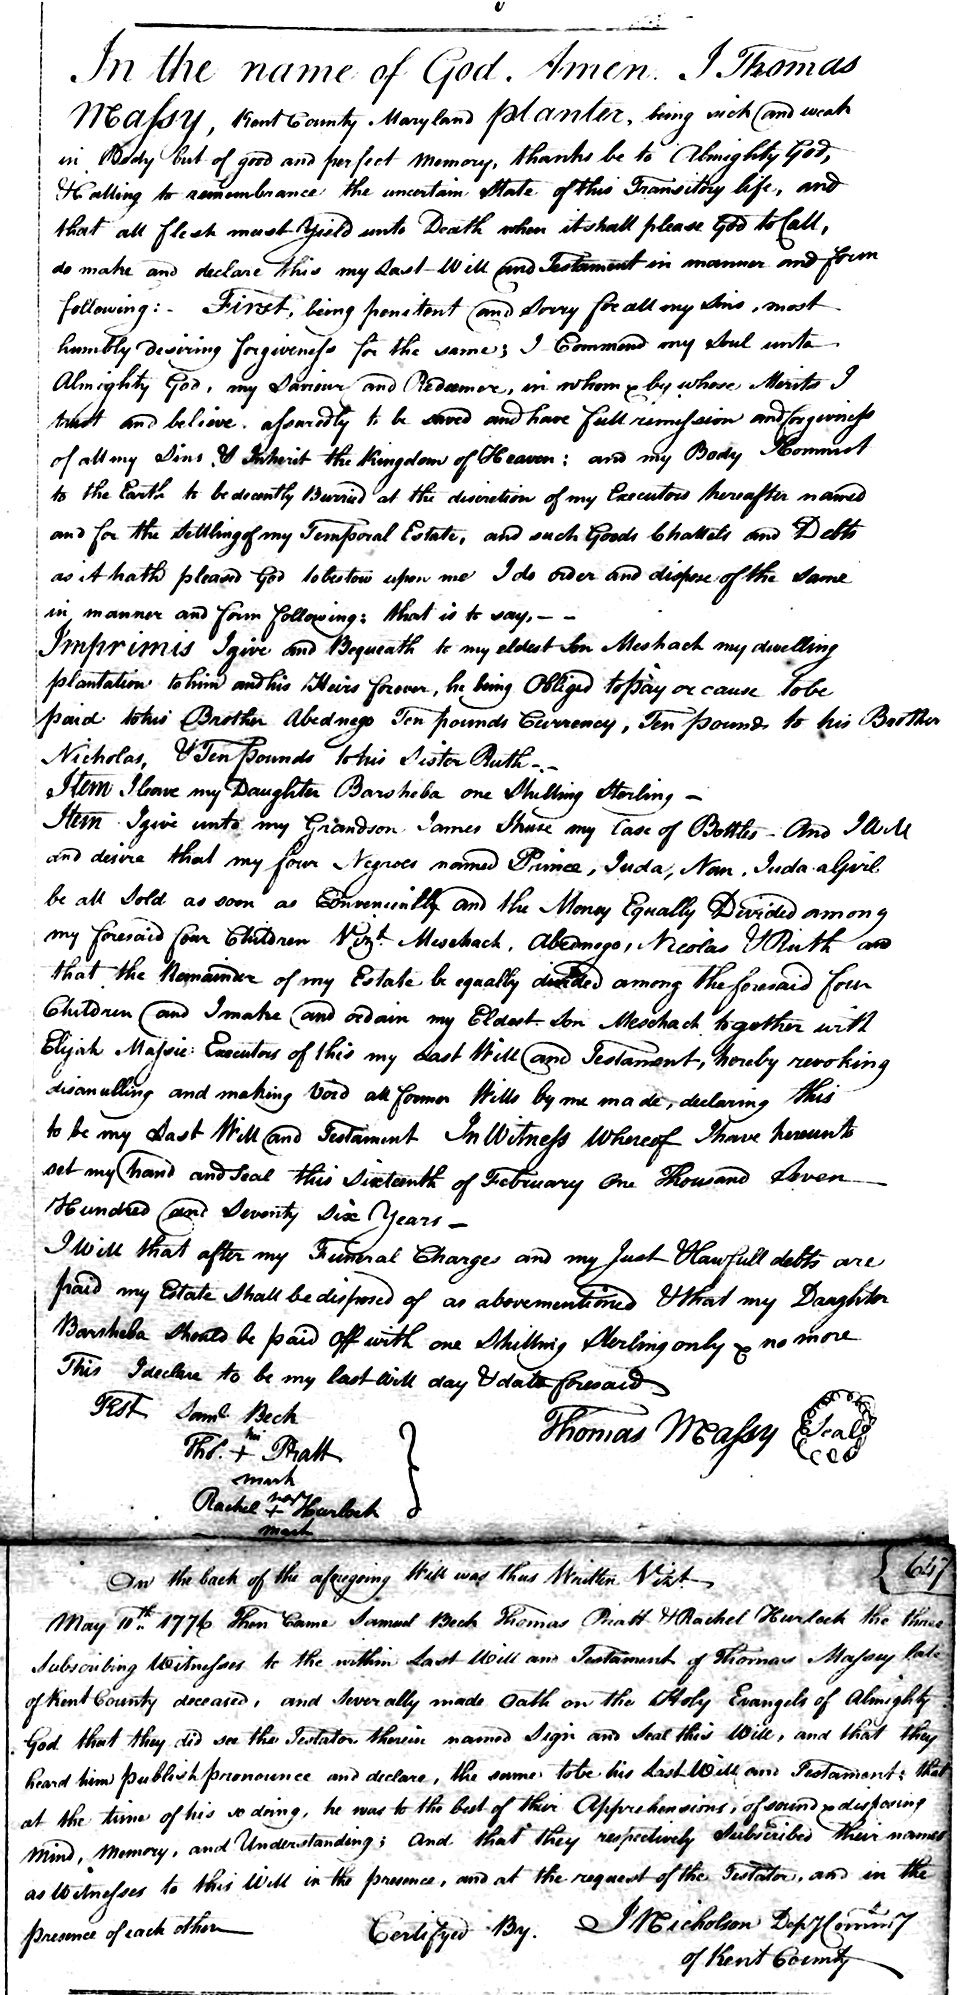 In the name of God. Amen. I Thomas
Massy, Kent County Maryland planter, being sick and weak
in Body but of good and perfect Memory, thanks be to Almighty God,
& Calling to remembrance the uncertain State of this Transitory life, and
that all flesh must Yield unto Death when it shall please God to Call,
do make and declare this my Last Will and Testament in manner and form
following:- First, being penitent and Sorry for all my Sins, most
humbly desiring forgiveness for the same; I Commend my Soul unto
Almighty God, my Saviour and Redeemer, in whom & by whose Merits I
trust and believe assuredly to be saved and have full remission and forgivness
of all my Sins & Inherit the Kingdom of Heaven; and my Body I Commit
to the Earth to be decently Burried at the discretion of my Executors hereafter named
and for the Settling of my Temporal Estate, and such Goods Chattels and Debts
as it hath pleased God to bestow upon me I do order and dispose of the Same
in manner and form following; that is to say,--
Imprimis I give and Bequeath to my eldest Son Meshach my dwelling
plantation to him and his Heirs forever, he being Obliged to pay or cause to be
paid to his Brother Abednego Ten pounds Currency, Ten pounds to his Brother
Nicholas, & Ten pounds to his Sister Ruth--
Item I leave my Daughter Barsheba one Shilling Sterling-
Item I give unto my Grandson James my Case of Bottles- And I Will
and desire that my four Negroes named Prince, Juda, Nan, Juda a Girl
be all Sold as soon as Conveniently and the Money Equally Divided among
my foresaid four Children Vizt. Meschach, Abednego, Nicolas & Ruth and
that the Remainder of my Estate be equally divided among the foresaid four
Children and I make and ordain my Eldest Son Meschach together with
Elijah Massie Executors of this my Last Will and Testament, hereby revoking
disanulling and making Void all former Wills by me made, declaring this
to be my Last Will and Testament In Witness Whereof I have hereunto
set my hand and Seal this Sixteenth of February One Thousand Seven
Hundred and Seventy Six Years-
I Will that after my Funeral Charges and my Just & Lawfull debts are
paid my Estate Shall be disposed of as abovementioned & that my Daughter
Barsheba Should be paid Off with one Shilling Sterling only & no more
This I declare to be my last Will day & date foresaid
Test Saml. Beck
Thomas Massy Seal
Tho. his + Pratt
mark
Rachel her + Hurlock
mark
647
On the back of the aforegoing Will was thus Written Vizt.
May 11th 1776 Then Came Samuel Beck Thomas Pratt & Rachel Hurlock the three
Subscribing Witnesses to the within Last Will and Testament of Thomas Massey late
of Kent County deceased, and Severally made Oath on the Holy Evangels of Almighty
God that they did see the Testator therein named Sign and Seal this Will, and that they
heard him publish pronounce and declare, the same to be his Last Will and Testament; that
at the time of his so doing, he was to the best of their Apprehensions, of sound & disposing
Mind, Memory, and Understanding; And that they respectively Subscribed their names
as Witnesses to this Will in the presence, and at the request of the Testator, and in the
presence of each other
Certifyed By. J Nicholson Depy Commry
of Kent County